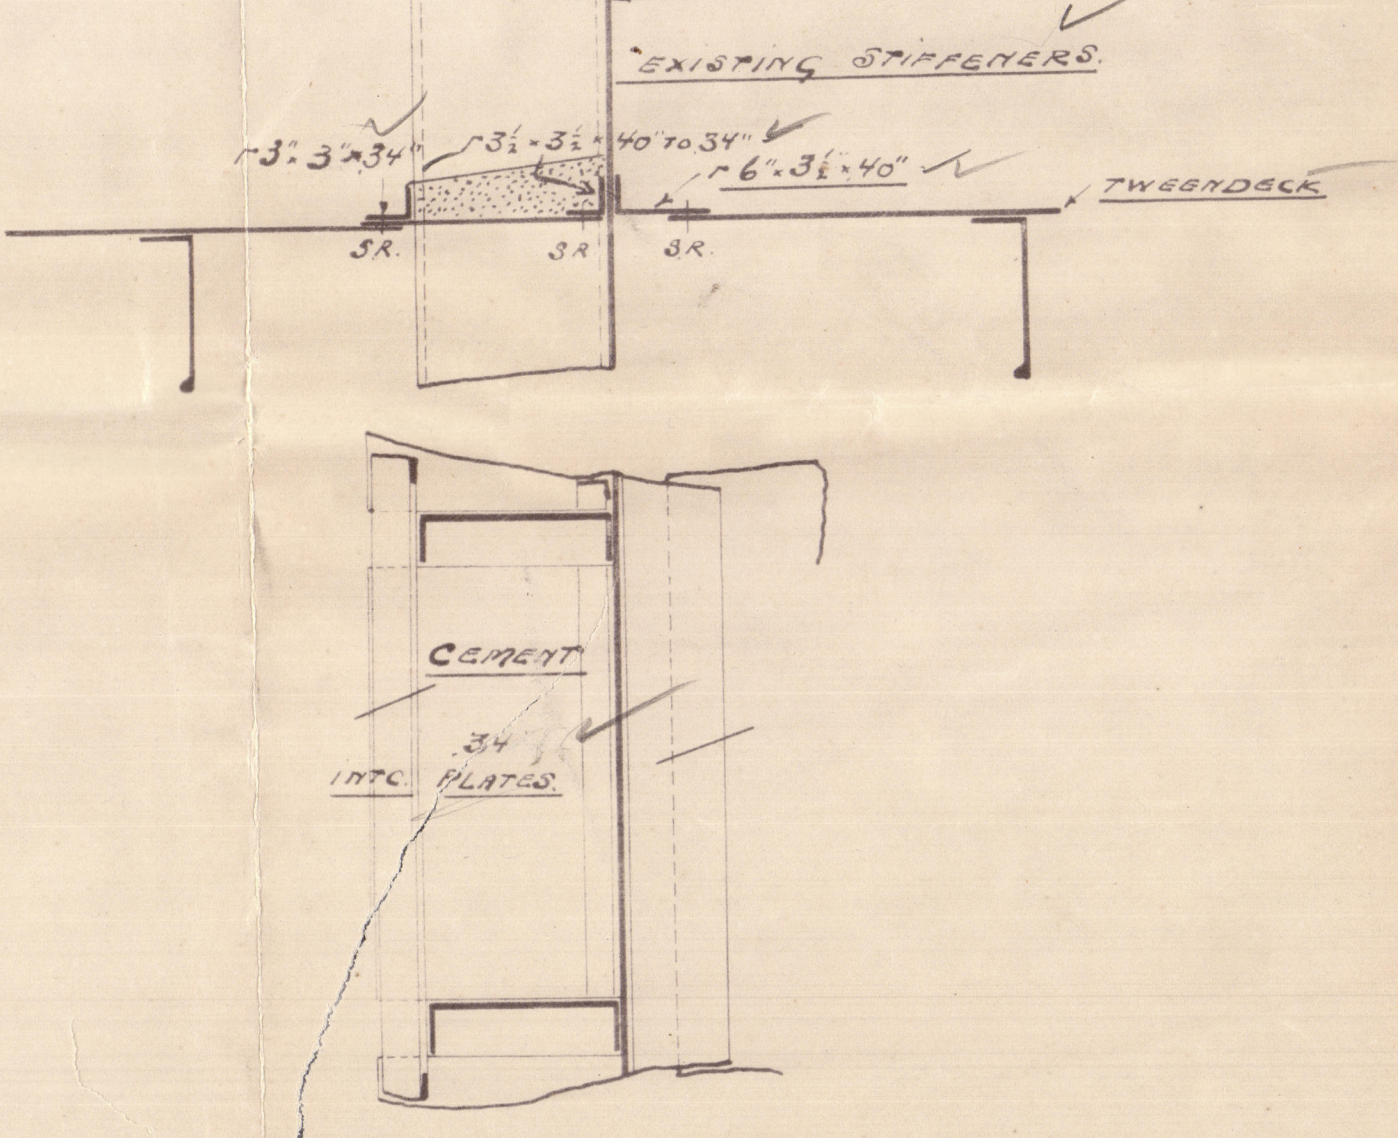 EXISTING STIFFENERS.
┌3" × 3" × 34" ┌3½ × 3½ × 40" TO 34"
┌ 6" × 3½ × 40"
TWEENDECK
S.R. S R S.R.
CEMENT
34
INTC. PLATES.